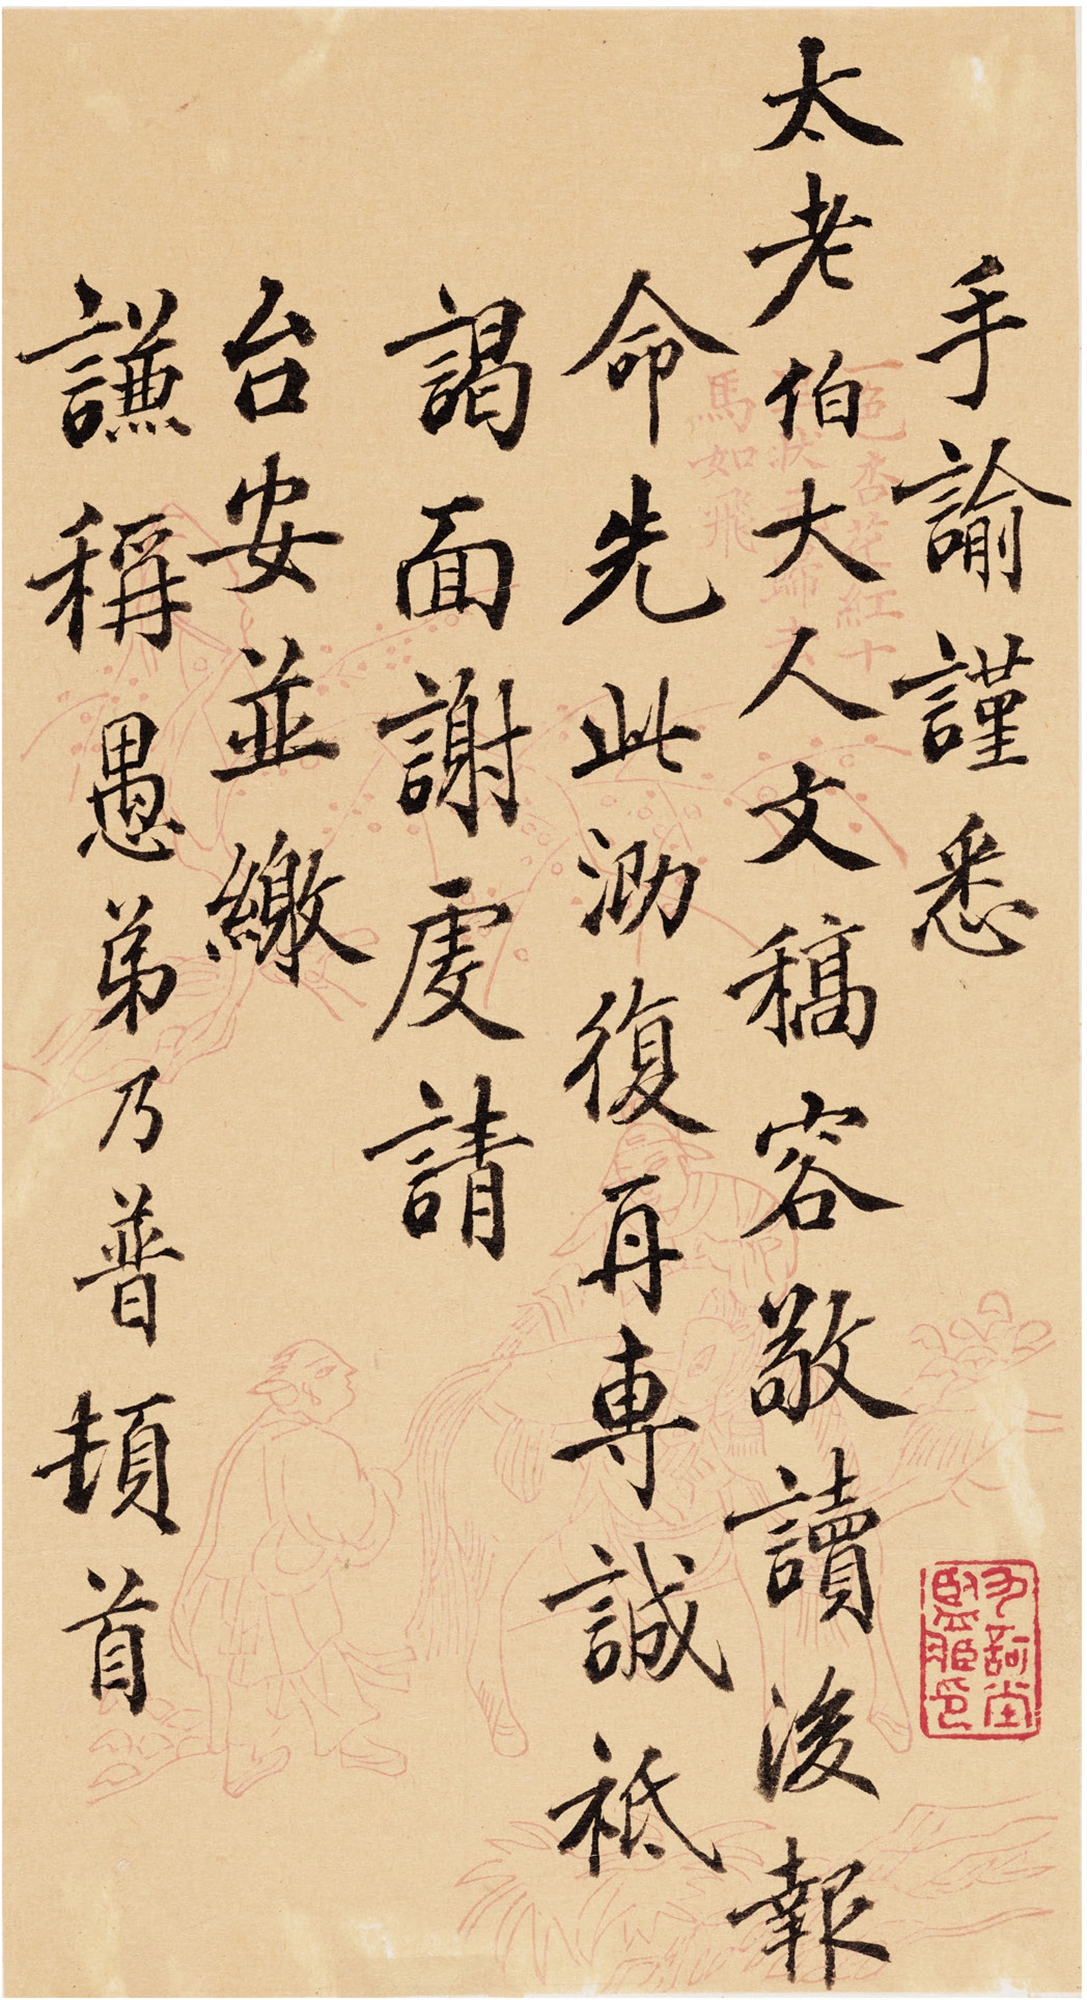 手諭謹悉
太老伯大人文稿容敬讀後報
命先此泐復再專誠祗
謁面謝虔請
台安並繳
謙稱愚弟乃普頓首
一色杏花紅十
里狀元歸去
馬如飛